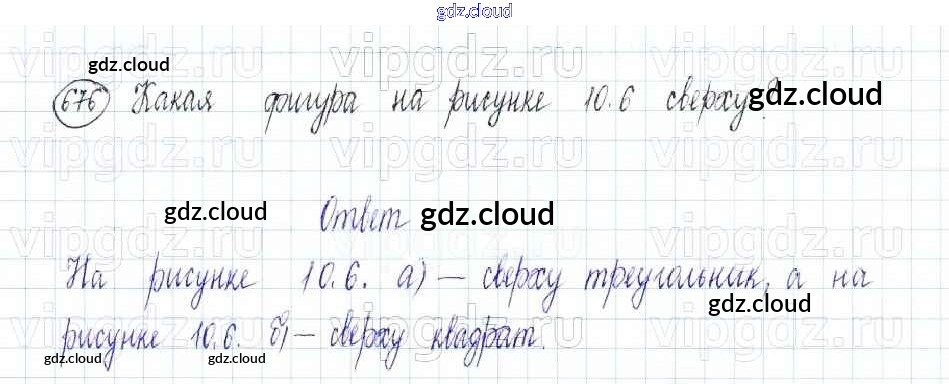 gdz.cloud
gdz.cloud
676 Какая фигура на рисунке 10.6 сверху?
gdz.cloud
vipgdz vipgdz vipgdz vipgdz
Ответ
gdz.cloud
gdz.cloud
На рисунке 10.6. а) – сверху треугольник, а на
gdz.cloud
рисунке 10.6. б) – сверху квадрат.
gdz.cloud gdz.cloud gdz.cloud